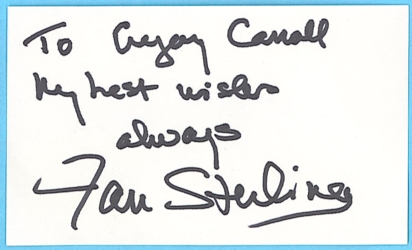 To Gregory Carroll
My best wishes
always
Jan Sterling